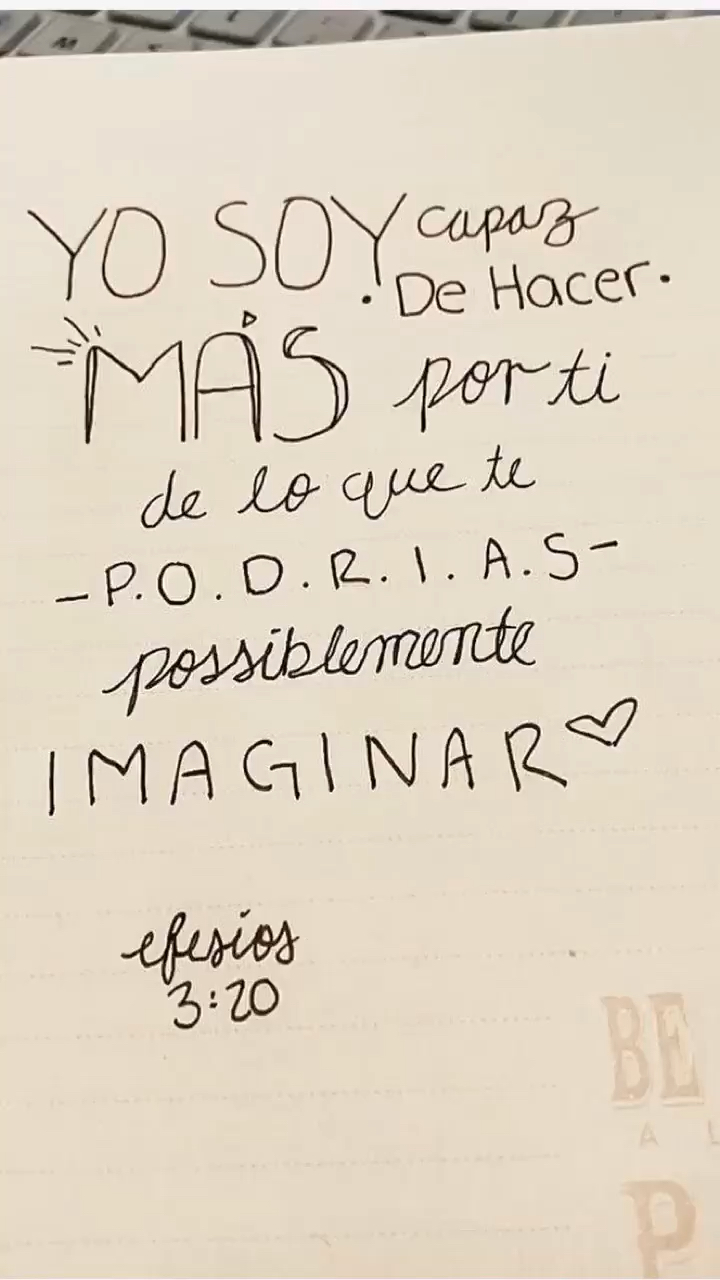 YO SOY capaz
. De Hacer.
MÁS por ti
de lo que te
-P.O.D.R.I.A.S-
possiblemente
IMAGINAR
efesios
3:20
BE
A L
P